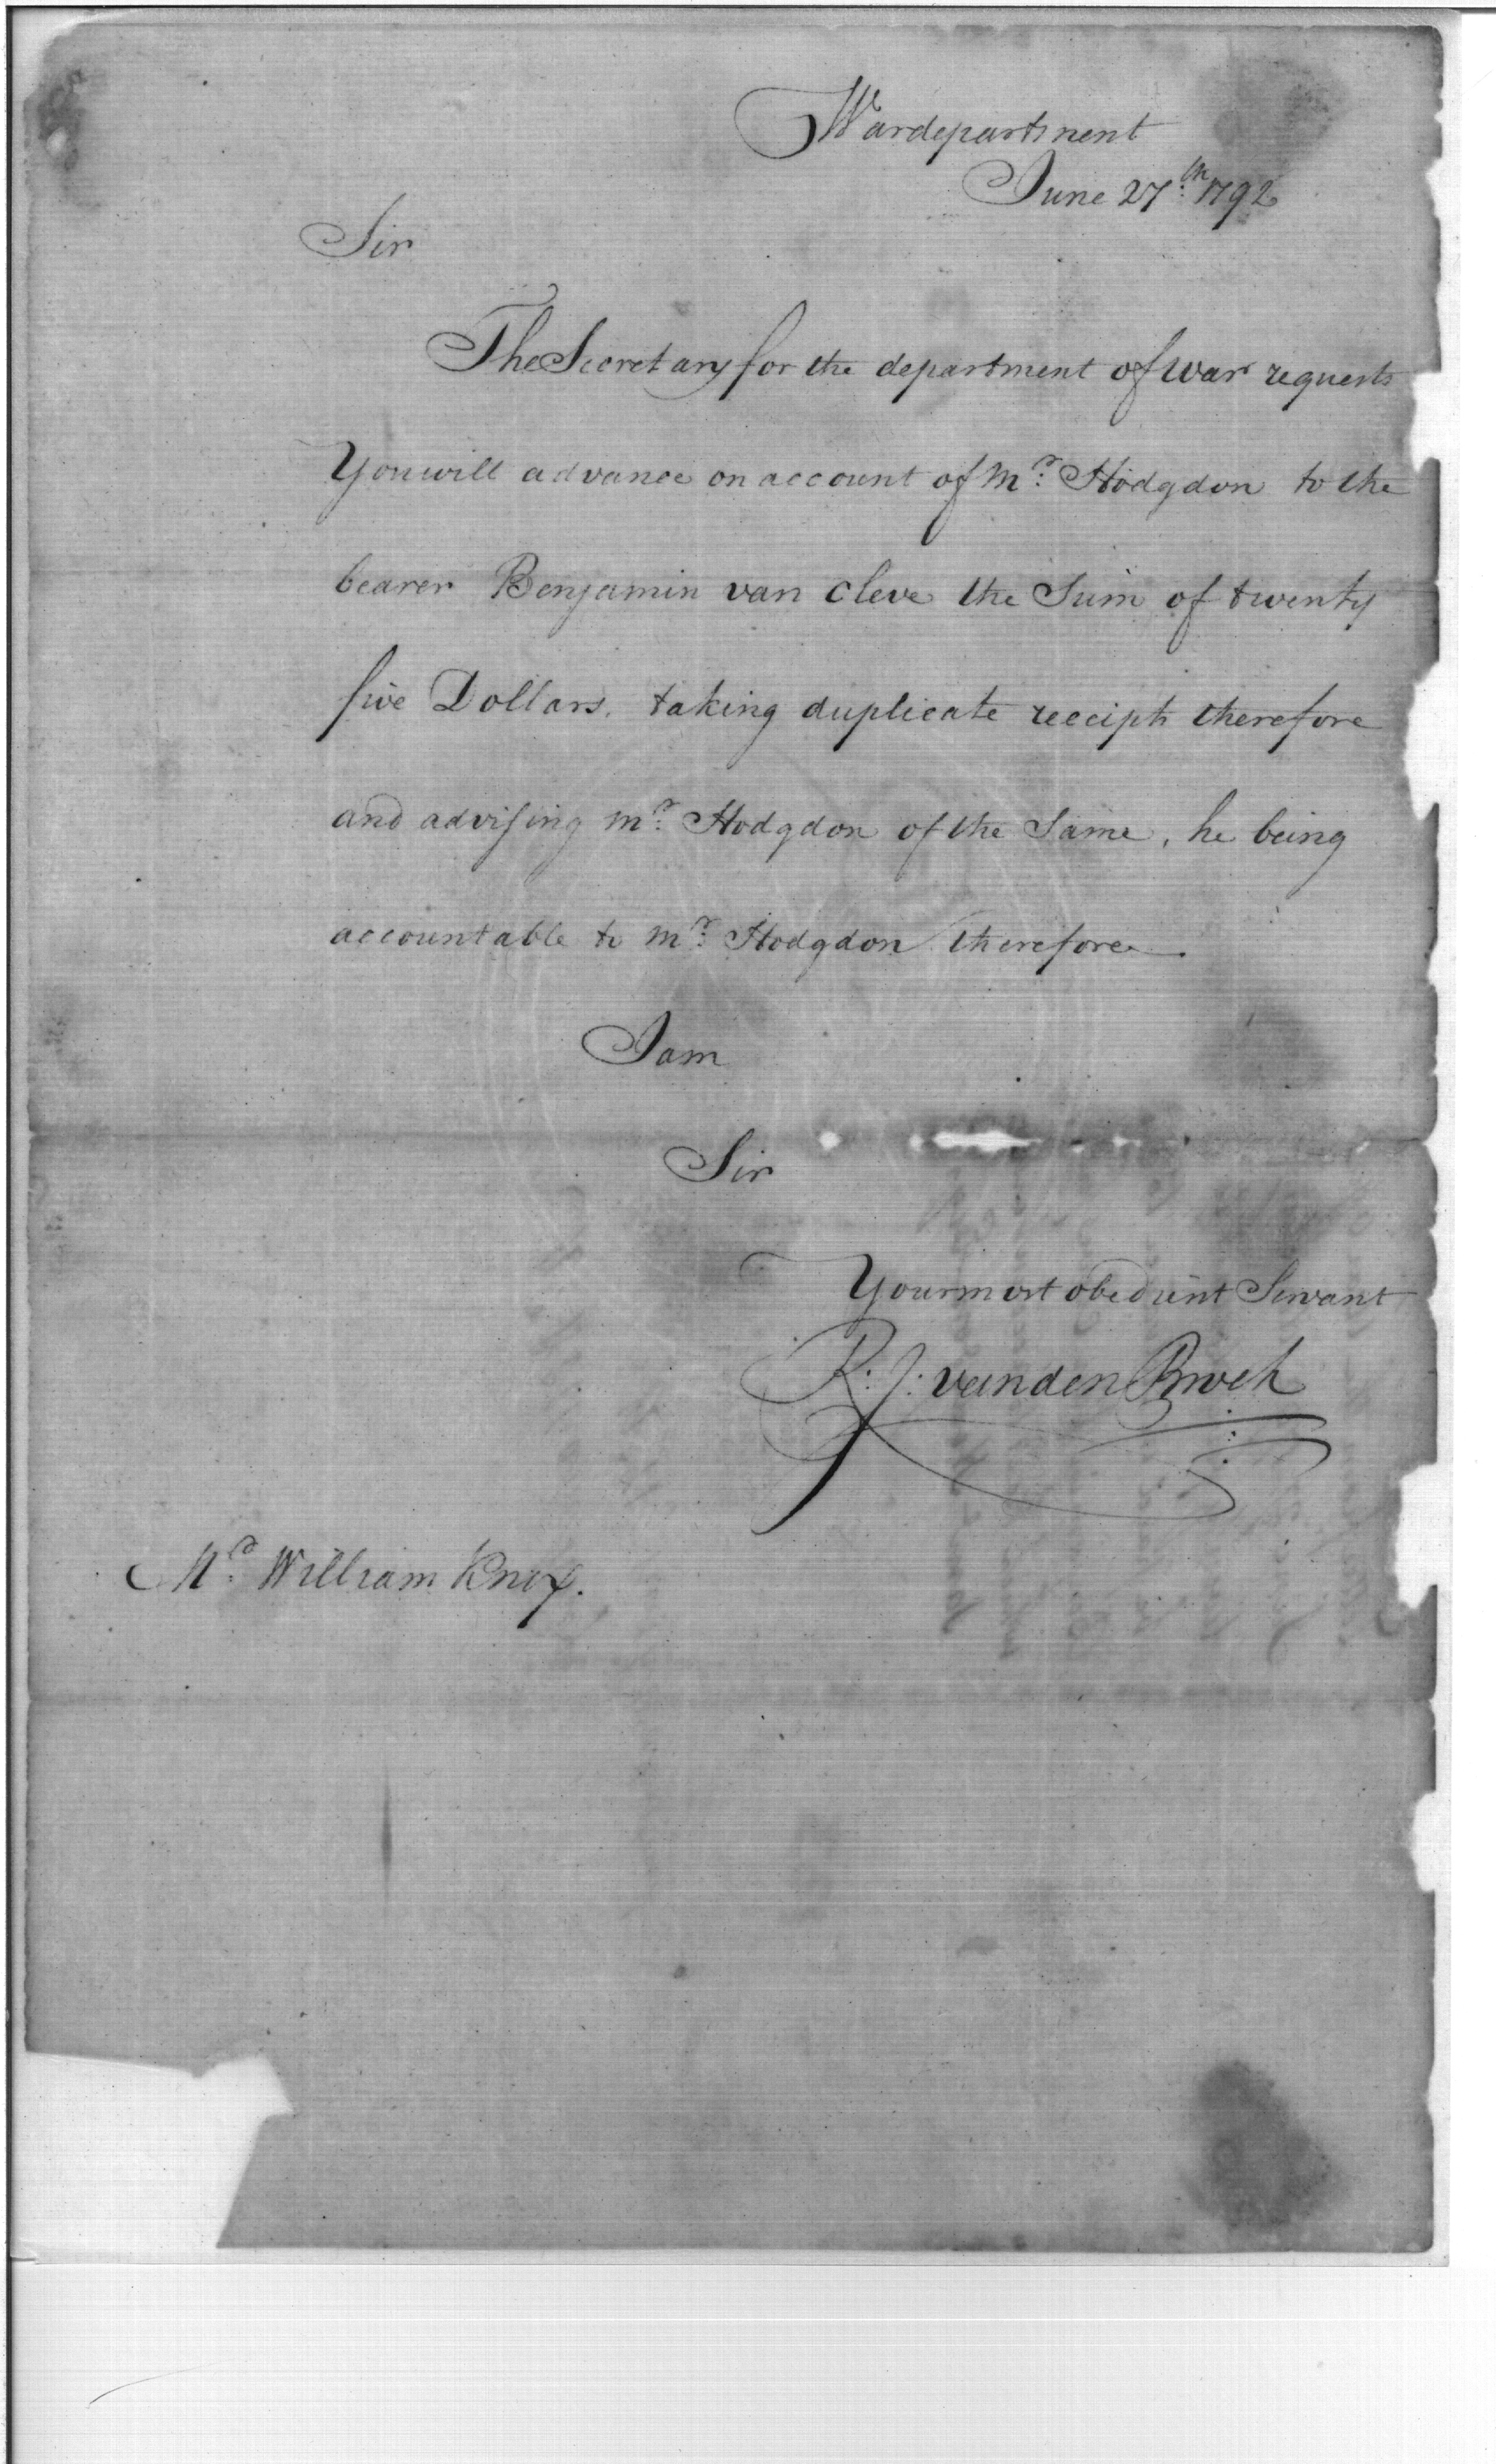 Wardepartment
June 27th 1792
Sir
The Secretary for the department of war requests
You will advance on account of Mr: Hodgdon to the
bearer Benjamin van Cleve the Sum of twenty
five Dollars, taking duplicate receipts therefore
and advising Mr: Hodgdon of the Same, he being
accountable to Mr: Hodgdon therefore.
I am
Sir
Your most obedient Servant
R: J: vanden Broek
Mr: William Knox.